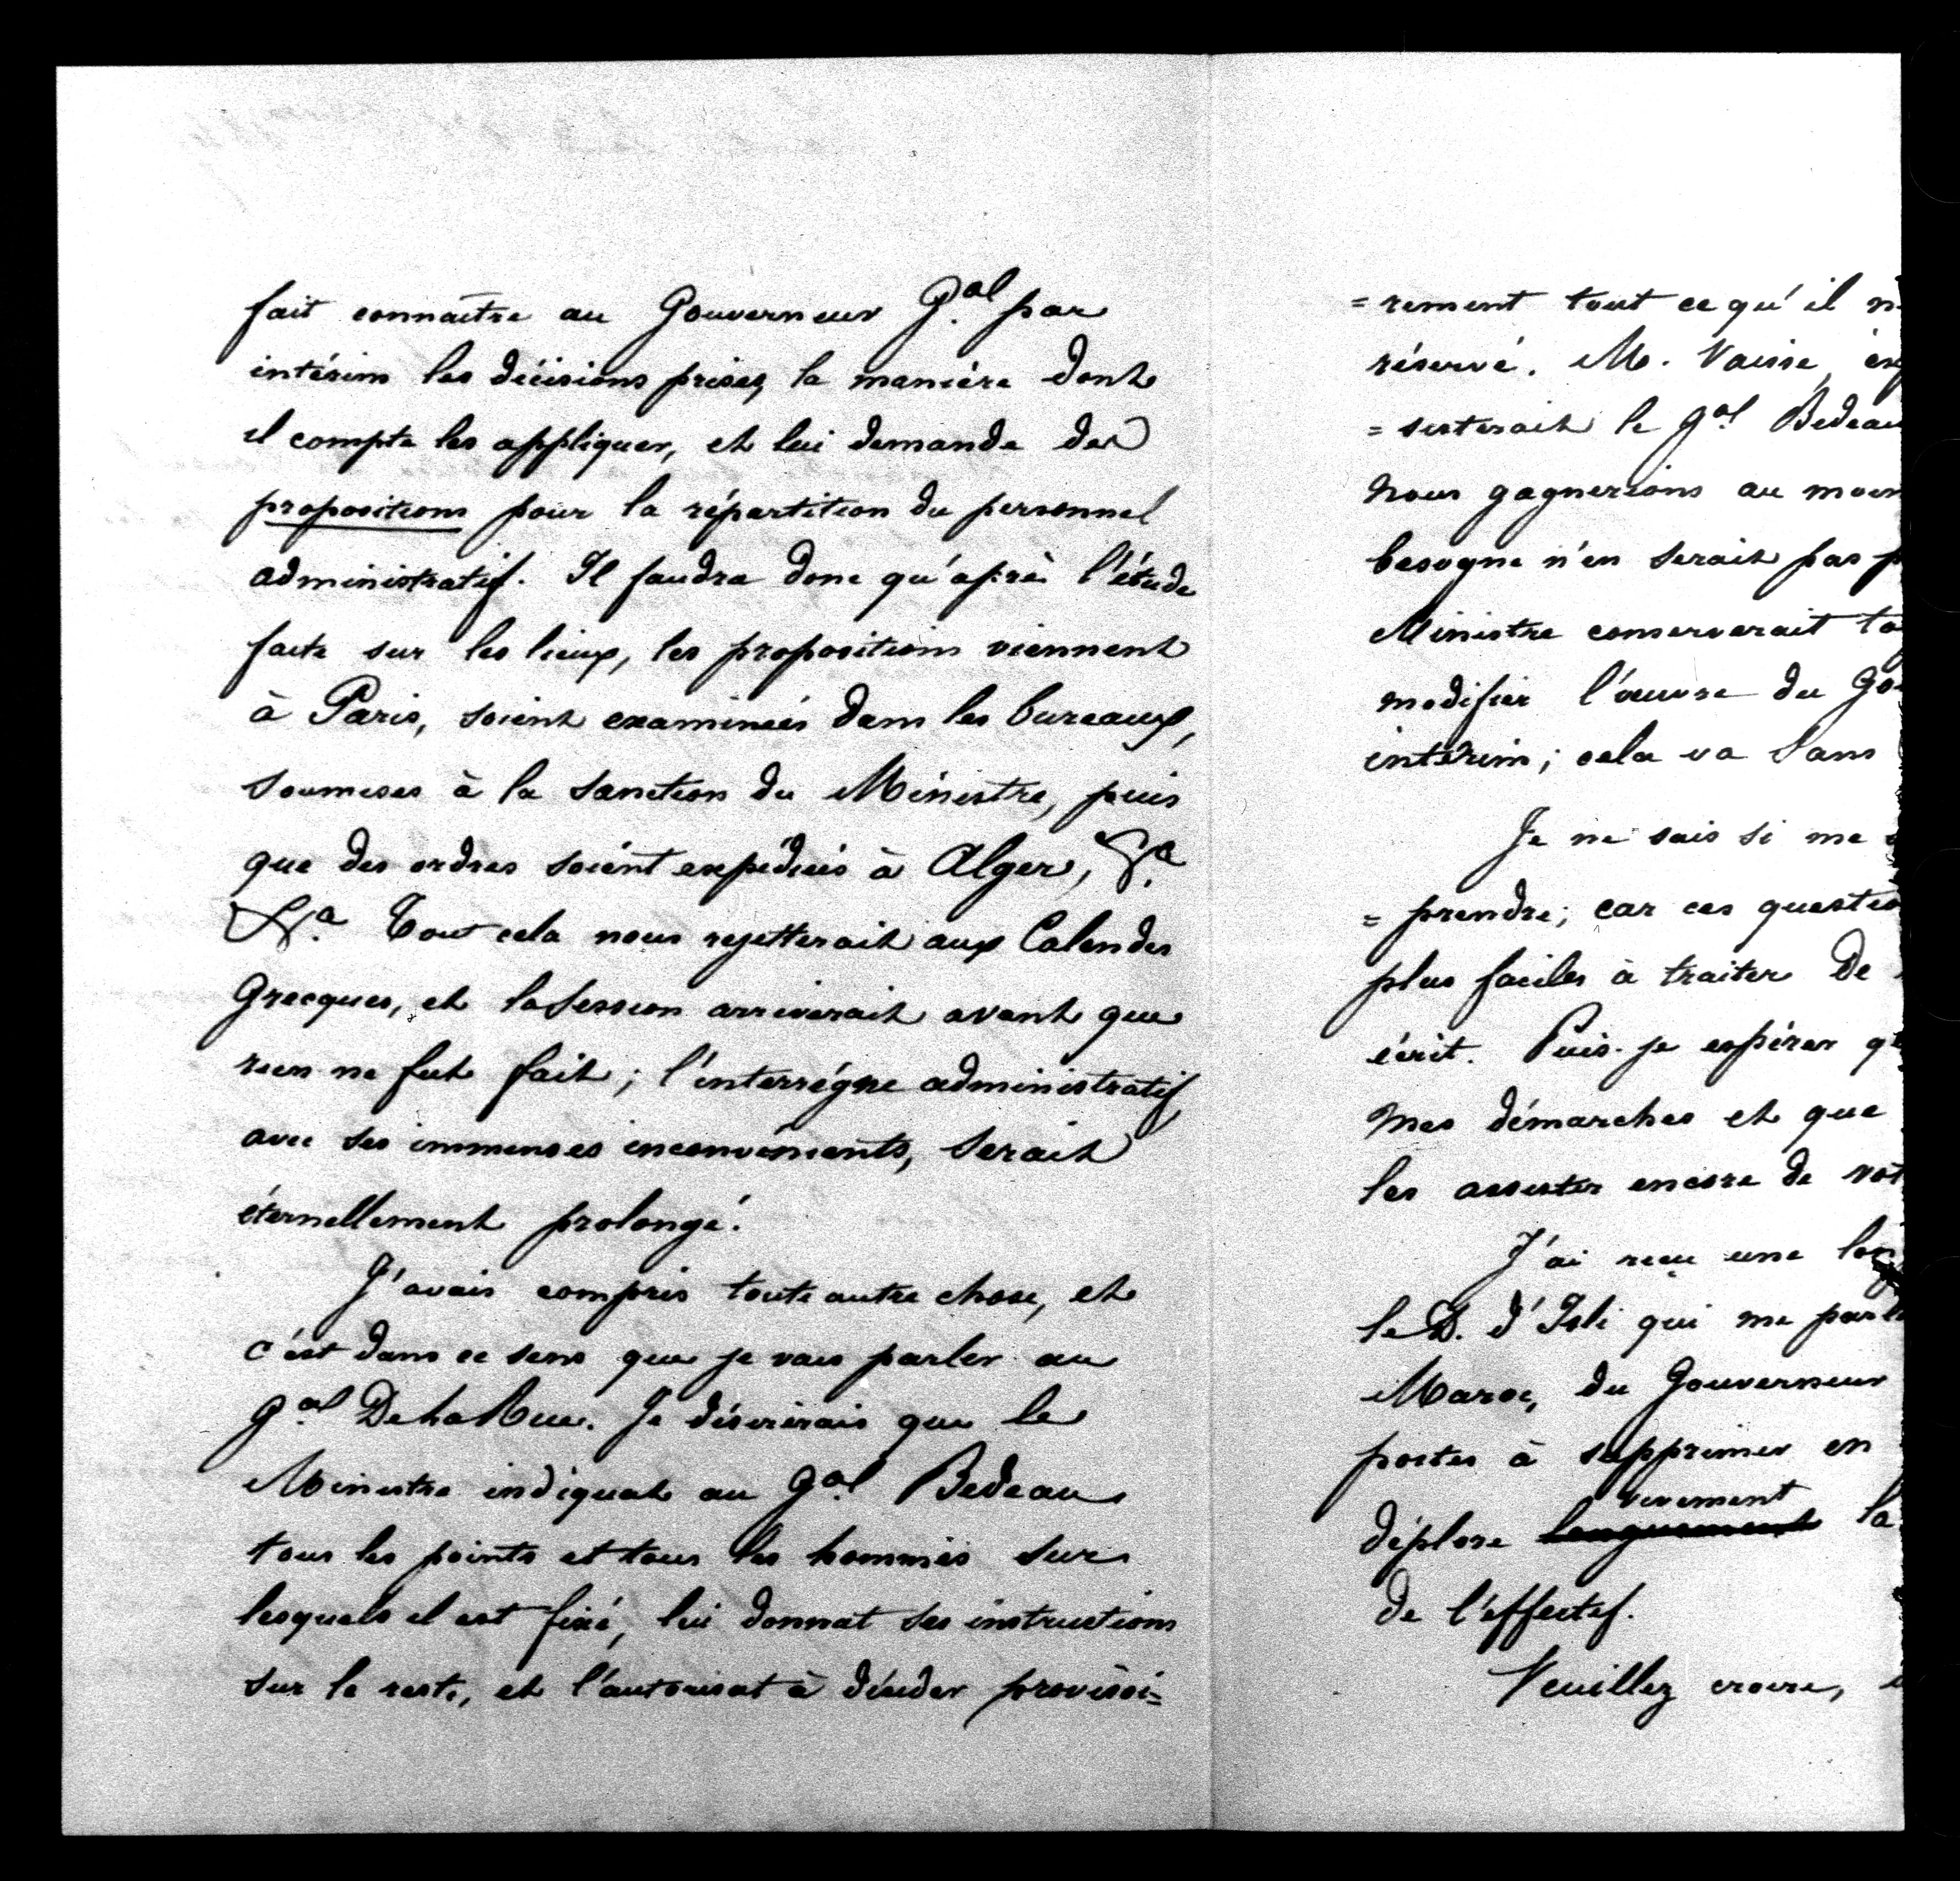 fait connaître au Gouverneur G.al par
intérim les décisions prises, la manière dont
il compte les appliquer, et lui demande des
propositions pour la répartition du personnel
administratif. Il faudra donc qu'après l'étude
faite sur les lieux, les propositions viennent
à Paris, soient examinées dans les bureaux,
soumises à la sanction du Ministre, puis
que des ordres soient expédiés à Alger, &.a
&.a Tout cela nous rejetterait aux Calendes
Grecques, et la Session arriverait avant que
rien ne fut fait ; l'interrégne administratif
avec ses immenses inconvénients, serait
éternellement prolongé.
J'avais compris toute autre chose, et
c'est dans ce sens que je vais parler au
G.al De La Rue. Je désirerais que le
Ministre indiquat au G.al Bedeau
tous les points et tous les hommes sur
lesquels il est fixé, lui donnat ses instructions
sur le reste, et l'autorisat à décider provisoi=
=rement tout ce qu'il n
réservé. M. Vaisse,
=sisterait le G.al Bedeau
Nous gagnerions au moin
besogne n'en serait pas p
Ministre conserverait to
modifier l'œuvre du Go
intérim ; cela va sans
Je ne sais si me
=prendre ; car ces questio
plus faciles à traiter De
écrit. Puis-je espérer q
mes démarches et que
les assister encore de vot
J'ai reçu une lon
le D. d'Isli qui me parle
Maroc, du Gouverneur
postes à supprimer en
vivement
déplore longuement la
de l'effectif.
Veuillez croire,